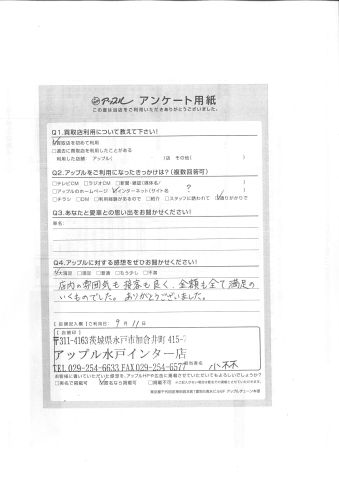 アップル アンケート用紙
この度は当店をご利用いただきありがとうございました。
Q1.買取店利用について教えて下さい!
☑買取店を初めて利用
□過去に買取店を利用したことがある
利用した店舗 アップル( )店 その他( )
Q2.アップルをご利用になったきっかけは?(複数回答可)
□テレビCM □ラジオCM □新聞・雑誌(媒体名/ )
□アップルのホームページ ☑インターネット(サイト名 ? )
□チラシ □DM □利用経験があるので □紹介 □スタッフに誘われて ☑通りがかりで
Q3.あなたと愛車との思い出をお聞かせください!
車名:
Q4.アップルに対する感想をぜひお聞かせください!
☑大満足 □満足 □普通 □もう少し □不満
店内の雰囲気も接客も良く、金額も全て満足の
いくものでした。ありがとうございました。
9月11日
〒311-4163茨城県水戸市加合井町415-
アップル水戸インター店
TEL 029-254-6633,FAX029-254-6577
担当者名 小林
お客様に書いていただいた感想を、アップルHPや広告に掲載させていただいてもよろしいでしょうか?
□実名で掲載可 ☑匿名なら掲載可 □掲載不可